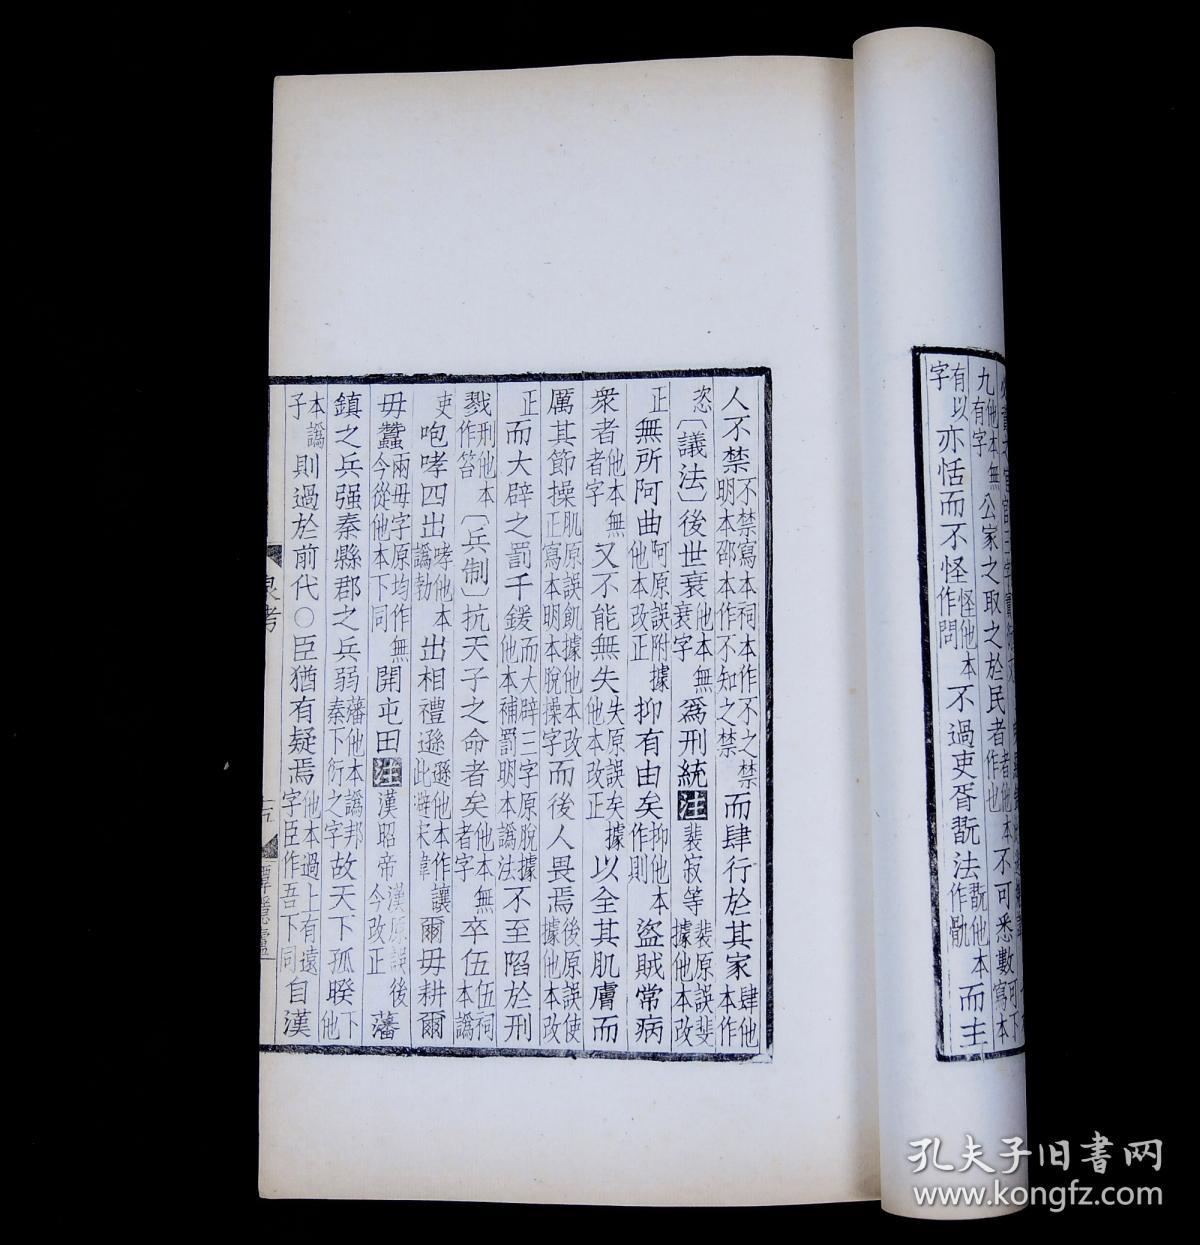 九有字他本無公家之取之於民者者他本作也不可悉數可下寫本
有以字亦恬而不怪怪他本作問不過吏胥翫法翫他本作骫而主
人不禁不禁寫本祠本作不之禁明本邵本作不知之禁而肆行於其家肆他本作
恣〔議法〕後世衰他本無衰字為刑統注裴寂等裴原誤斐據他本改
正無所阿曲阿原誤附據他本改正抑有由矣抑他本作則盜賊常病
衆者他本無者字又不能無失失原誤矣據他本改正以全其肌膚而
厲其節操肌原誤飢據他本改正寫本明本脫操字而後人畏焉後原誤使據他本改
正而大辟之罰千鍰而大辟三字原脫據他本補罰明本譌法不至陷於刑
戮刑他本作笞〔兵制〕抗天子之命者矣他本無者字卒伍伍祠本譌
吏咆哮四出哮他本譌勃出相禮遜遜他本作讓此避宋諱爾毋耕爾
毋蠶兩毋字原均作無今從他本下同開屯田注漢昭帝漢原誤後今改正藩
鎮之兵强秦縣郡之兵弱藩他本譌邦秦下衍之字故天下孤睽下他
本譌子則過於前代○臣猶有疑焉他本過上有遠字臣作吾下同自漢
孔夫子旧书网
www.kongfz.com